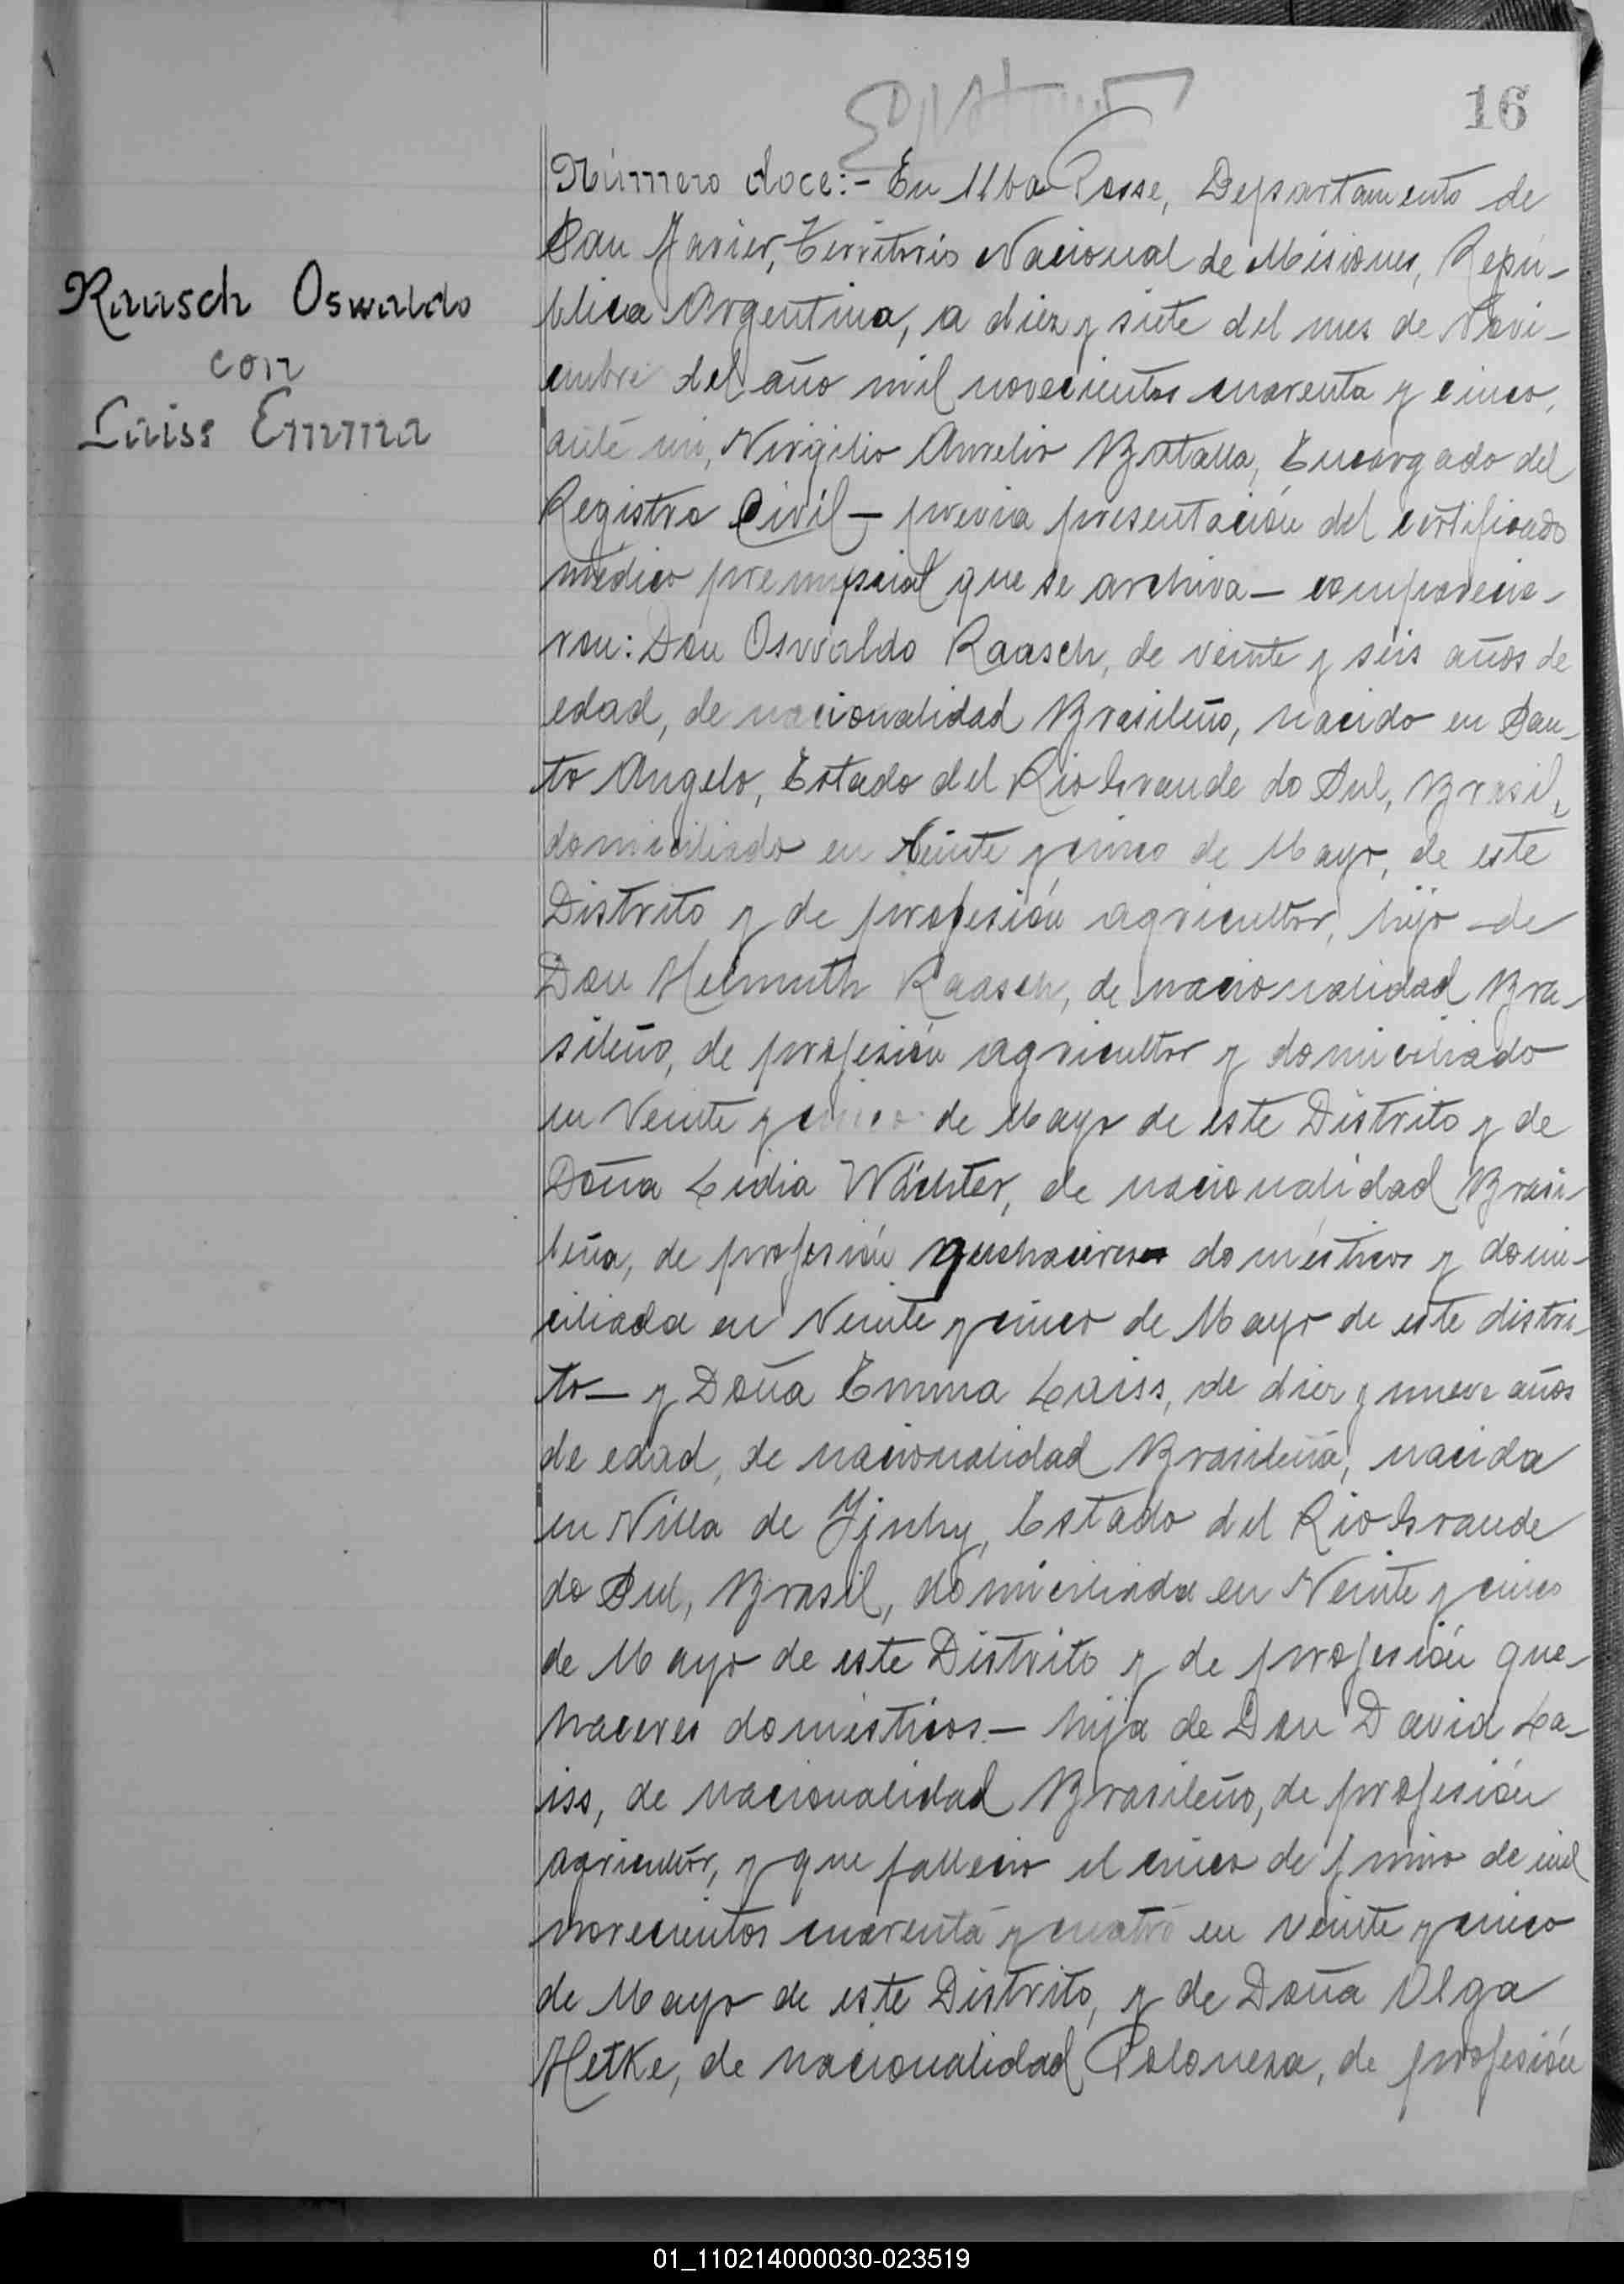 16
Raasch Oswaldo
con
Laiss Emma
Número doce:- En Alba Posse, Departamento de
San Javier, Territorio Nacional de Misiones, Repú-
blica Argentina, a diez y siete del mes de Novi-
embre del año mil novecientos cuarenta y cinco,
ante mi, Virgilio Aurelio Batalla, Encargado del
Registro Civil — previa presentación del certificado
médico prenupcial que se archiva — comparecie-
ron: Don Osvaldo Raasch, de veinte y seis años de
edad, de nacionalidad Brasileño, nacido en San-
to Angelo, Estado del Rio Grande do Sul, Brasil,
domiciliado en Veinte y cinco de Mayo, de este
Distrito y de profesión agricultor, hijo de
Don Helmuth Raasch, de nacionalidad Bra-
sileño, de profesión agricultor y domiciliado
en Veinte y cinco de Mayo de este Distrito y de
Doña Lidia Wächter, de nacionalidad Brasi-
leña, de profesión quehaceres domésticos y domi-
ciliada en Veinte y cinco de Mayo de este distri-
to — y Doña Emma Laiss, de diez y nueve años
de edad, de nacionalidad Brasileña, nacida
en Villa de Yjuhy, Estado del Rio Grande
do Sul, Brasil, domiciliada en Veinte y cinco
de Mayo de este Distrito y de profesión que-
haceres domésticos — hija de Don David La-
iss, de nacionalidad Brasileño, de profesión
agricultor, y que fallecio el cinco de junio de mil
novecientos cuarenta y cuatro en veinte y cinco
de Mayo de este Distrito, y de Doña Olga
Hetke, de nacionalidad Polonesa, de profesión
01_110214000030-023519